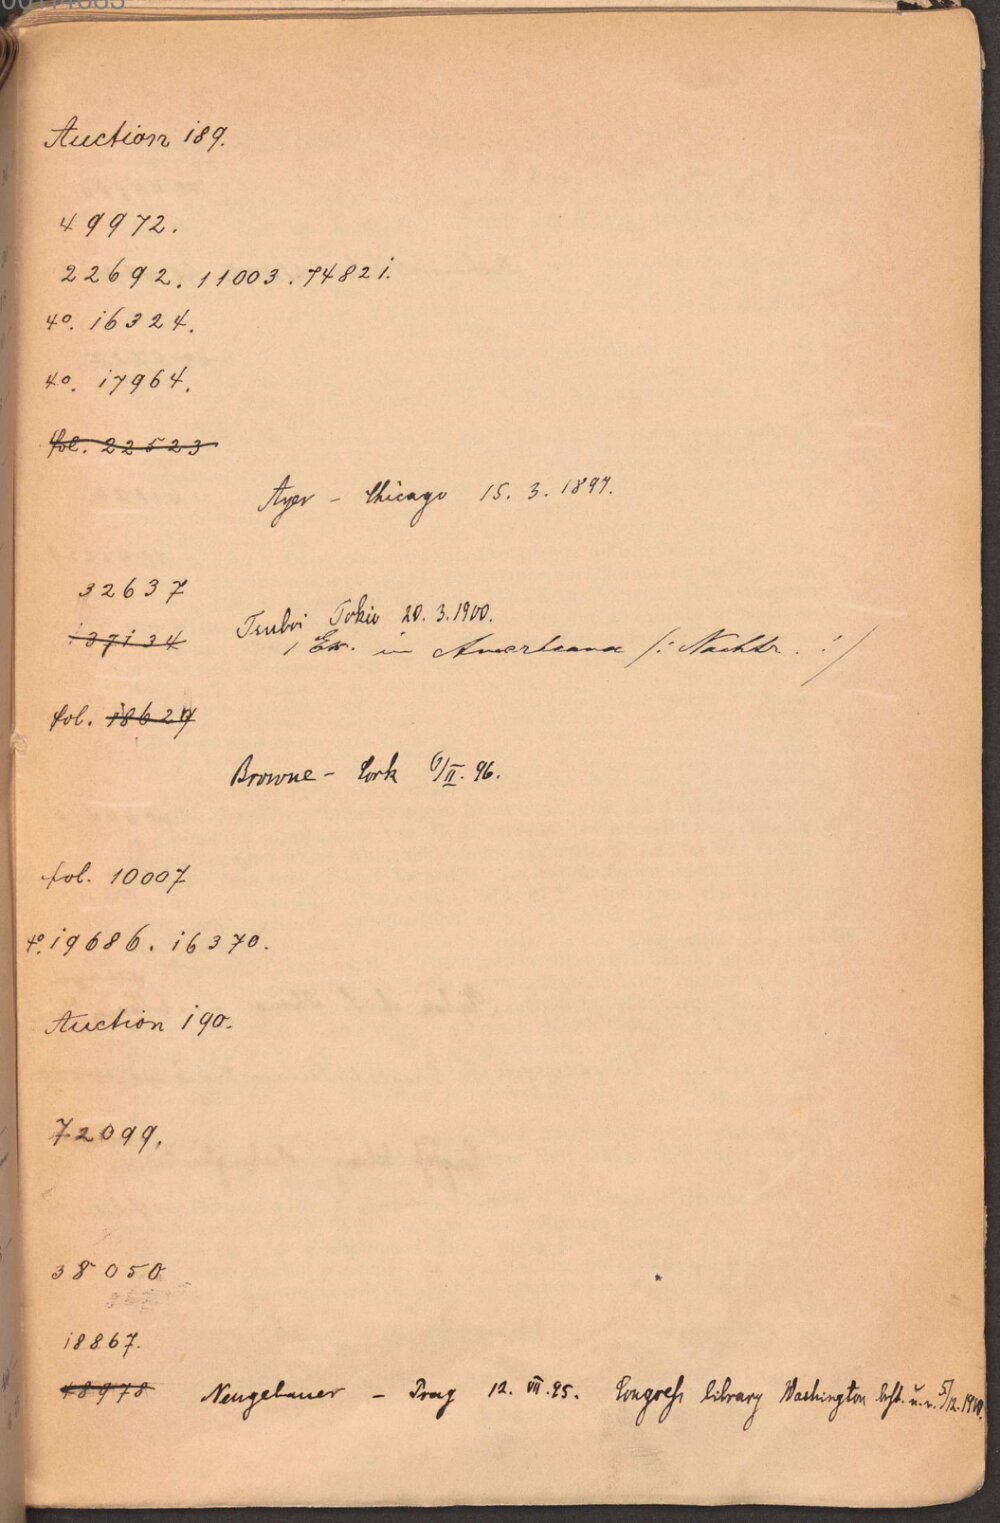 Auction 189.
49972.
22692. 11003. 74821.
4o. 16324.
4o. 17964.
fol. 22523
Ayer - Chicago 15. 3. 1897.
32637
Tsuboi Tokio 20. 3. 1900.
37134
1 Ex. in Americana /: Nachtr. :/
fol. 18629
Browne - Cork 6/II. 96.
fol. 10007
4o. 19686. 16370.
Auction 190.
72099.
38050
18867.
18978 Neugebauer - Prag 12. VII. 95. Congress library Washington 5/12. 1900.